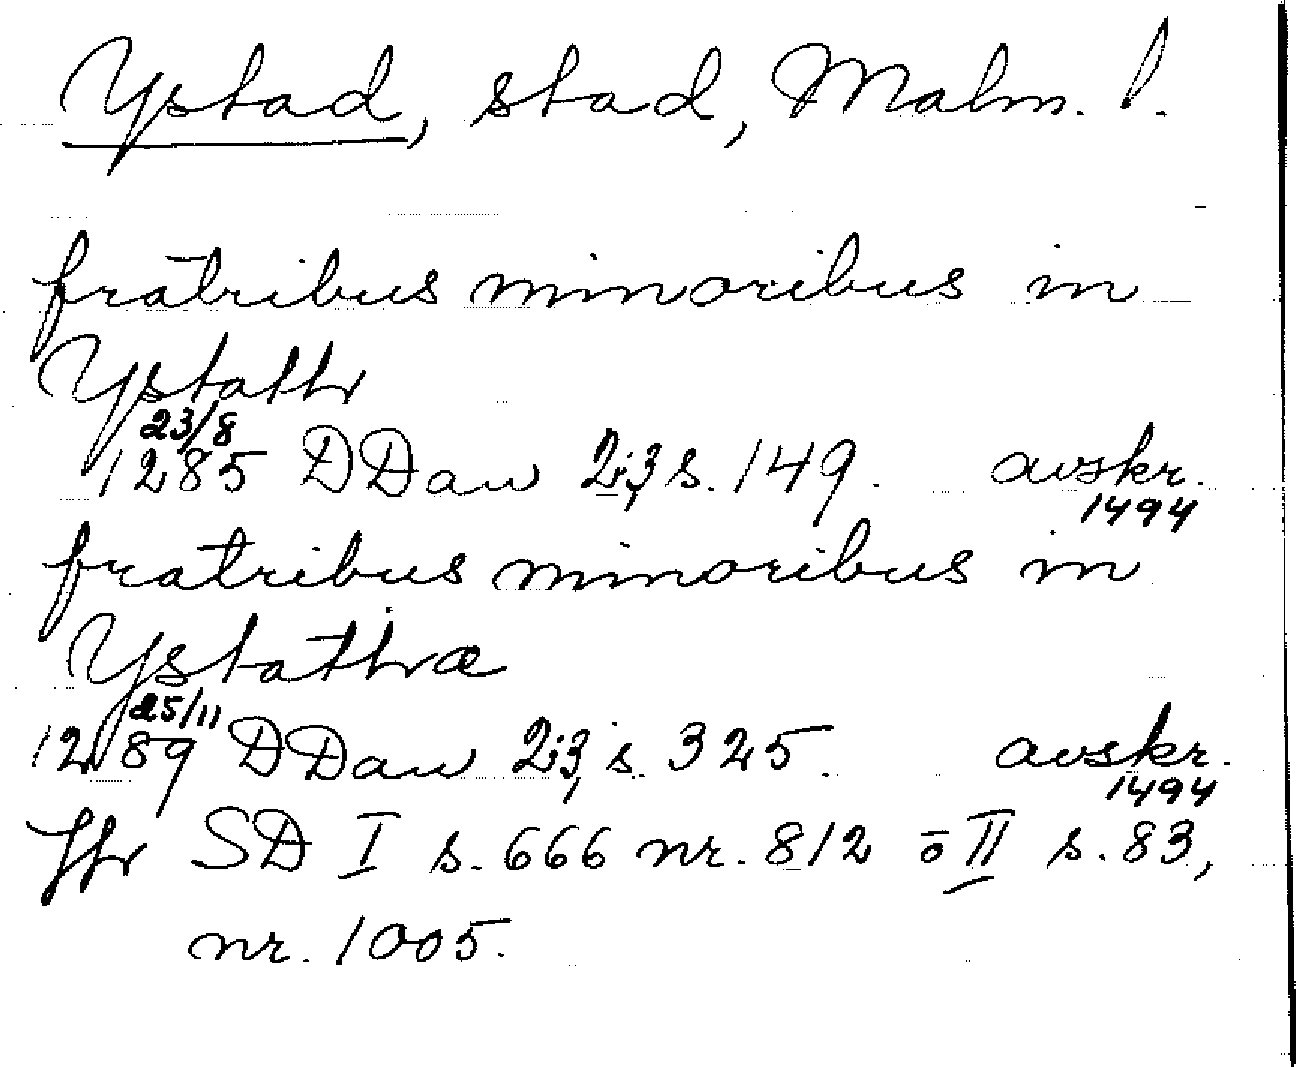 Ystad, stad, Malm. l.
fratribus minoribus in
Ystath
23/8
1285 DDan 2:3, s. 149. avskr.
1494
fratribus minoribus in
Ystathæ
25/11
1289 DDan 2:3, s. 325. avskr.
1494
Jfr SD I s. 666 nr. 812 o II s. 83,
nr. 1005.